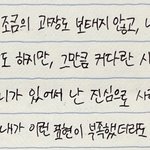 조금의 과장도 보태지 않고, 나
도 하지만, 그만큼 커다란 시
리가 있어서 난 진심으로 사
내가 이런 표현이 부족했더라도